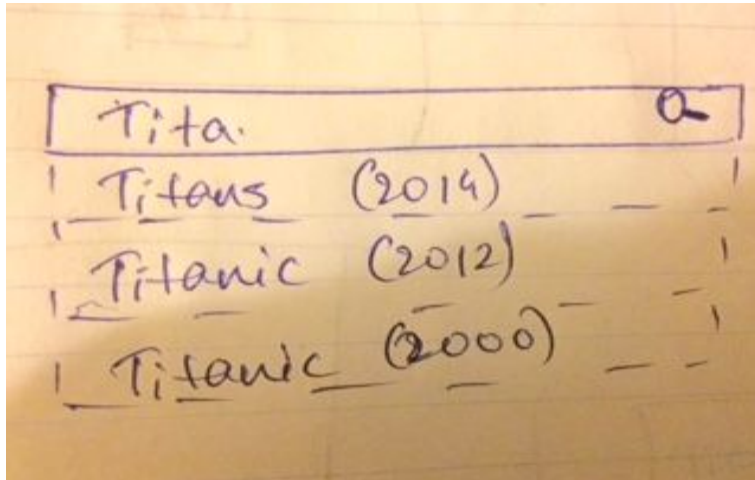 Tita.
Titans (2014)
Titanic (2012)
Titanic (2000)